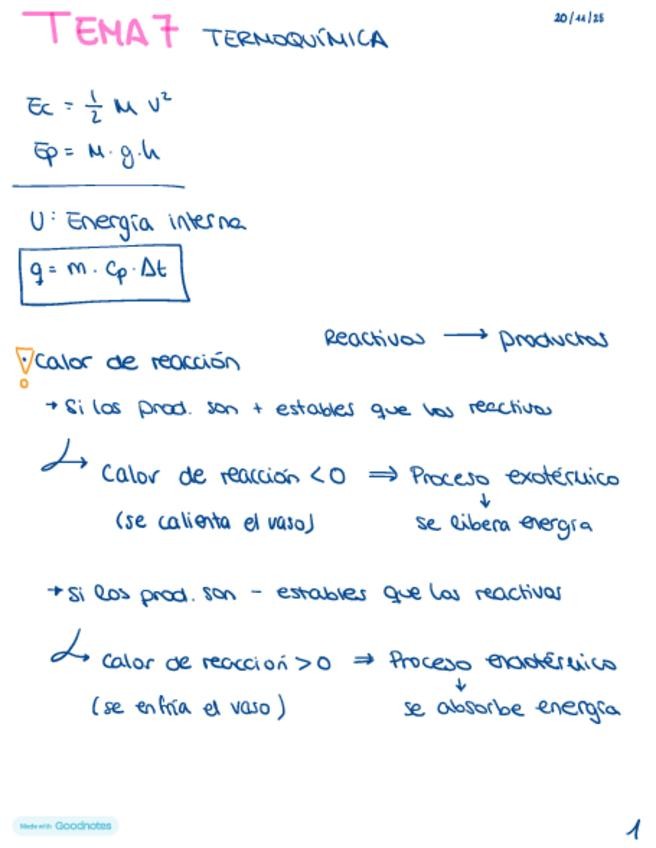 TEMA 7 TERMOQUÍMICA
20/11/25
Ec = 1/2 M v²
Ep = M · g · h
U: Energía interna
q = m · Cp · Δt
Reactivos → Productos
! Calor de reacción
→ Si los prod. son + estables que los reactivos
↳ Calor de reacción < 0 ⇒ Proceso exotérmico
↓
(se calienta el vaso) se libera energía
→ Si los prod. son - estables que los reactivos
↳ Calor de reacción > 0 ⇒ Proceso
↓
(se enfría el vaso) se absorbe energía
Made with Goodnotes
1